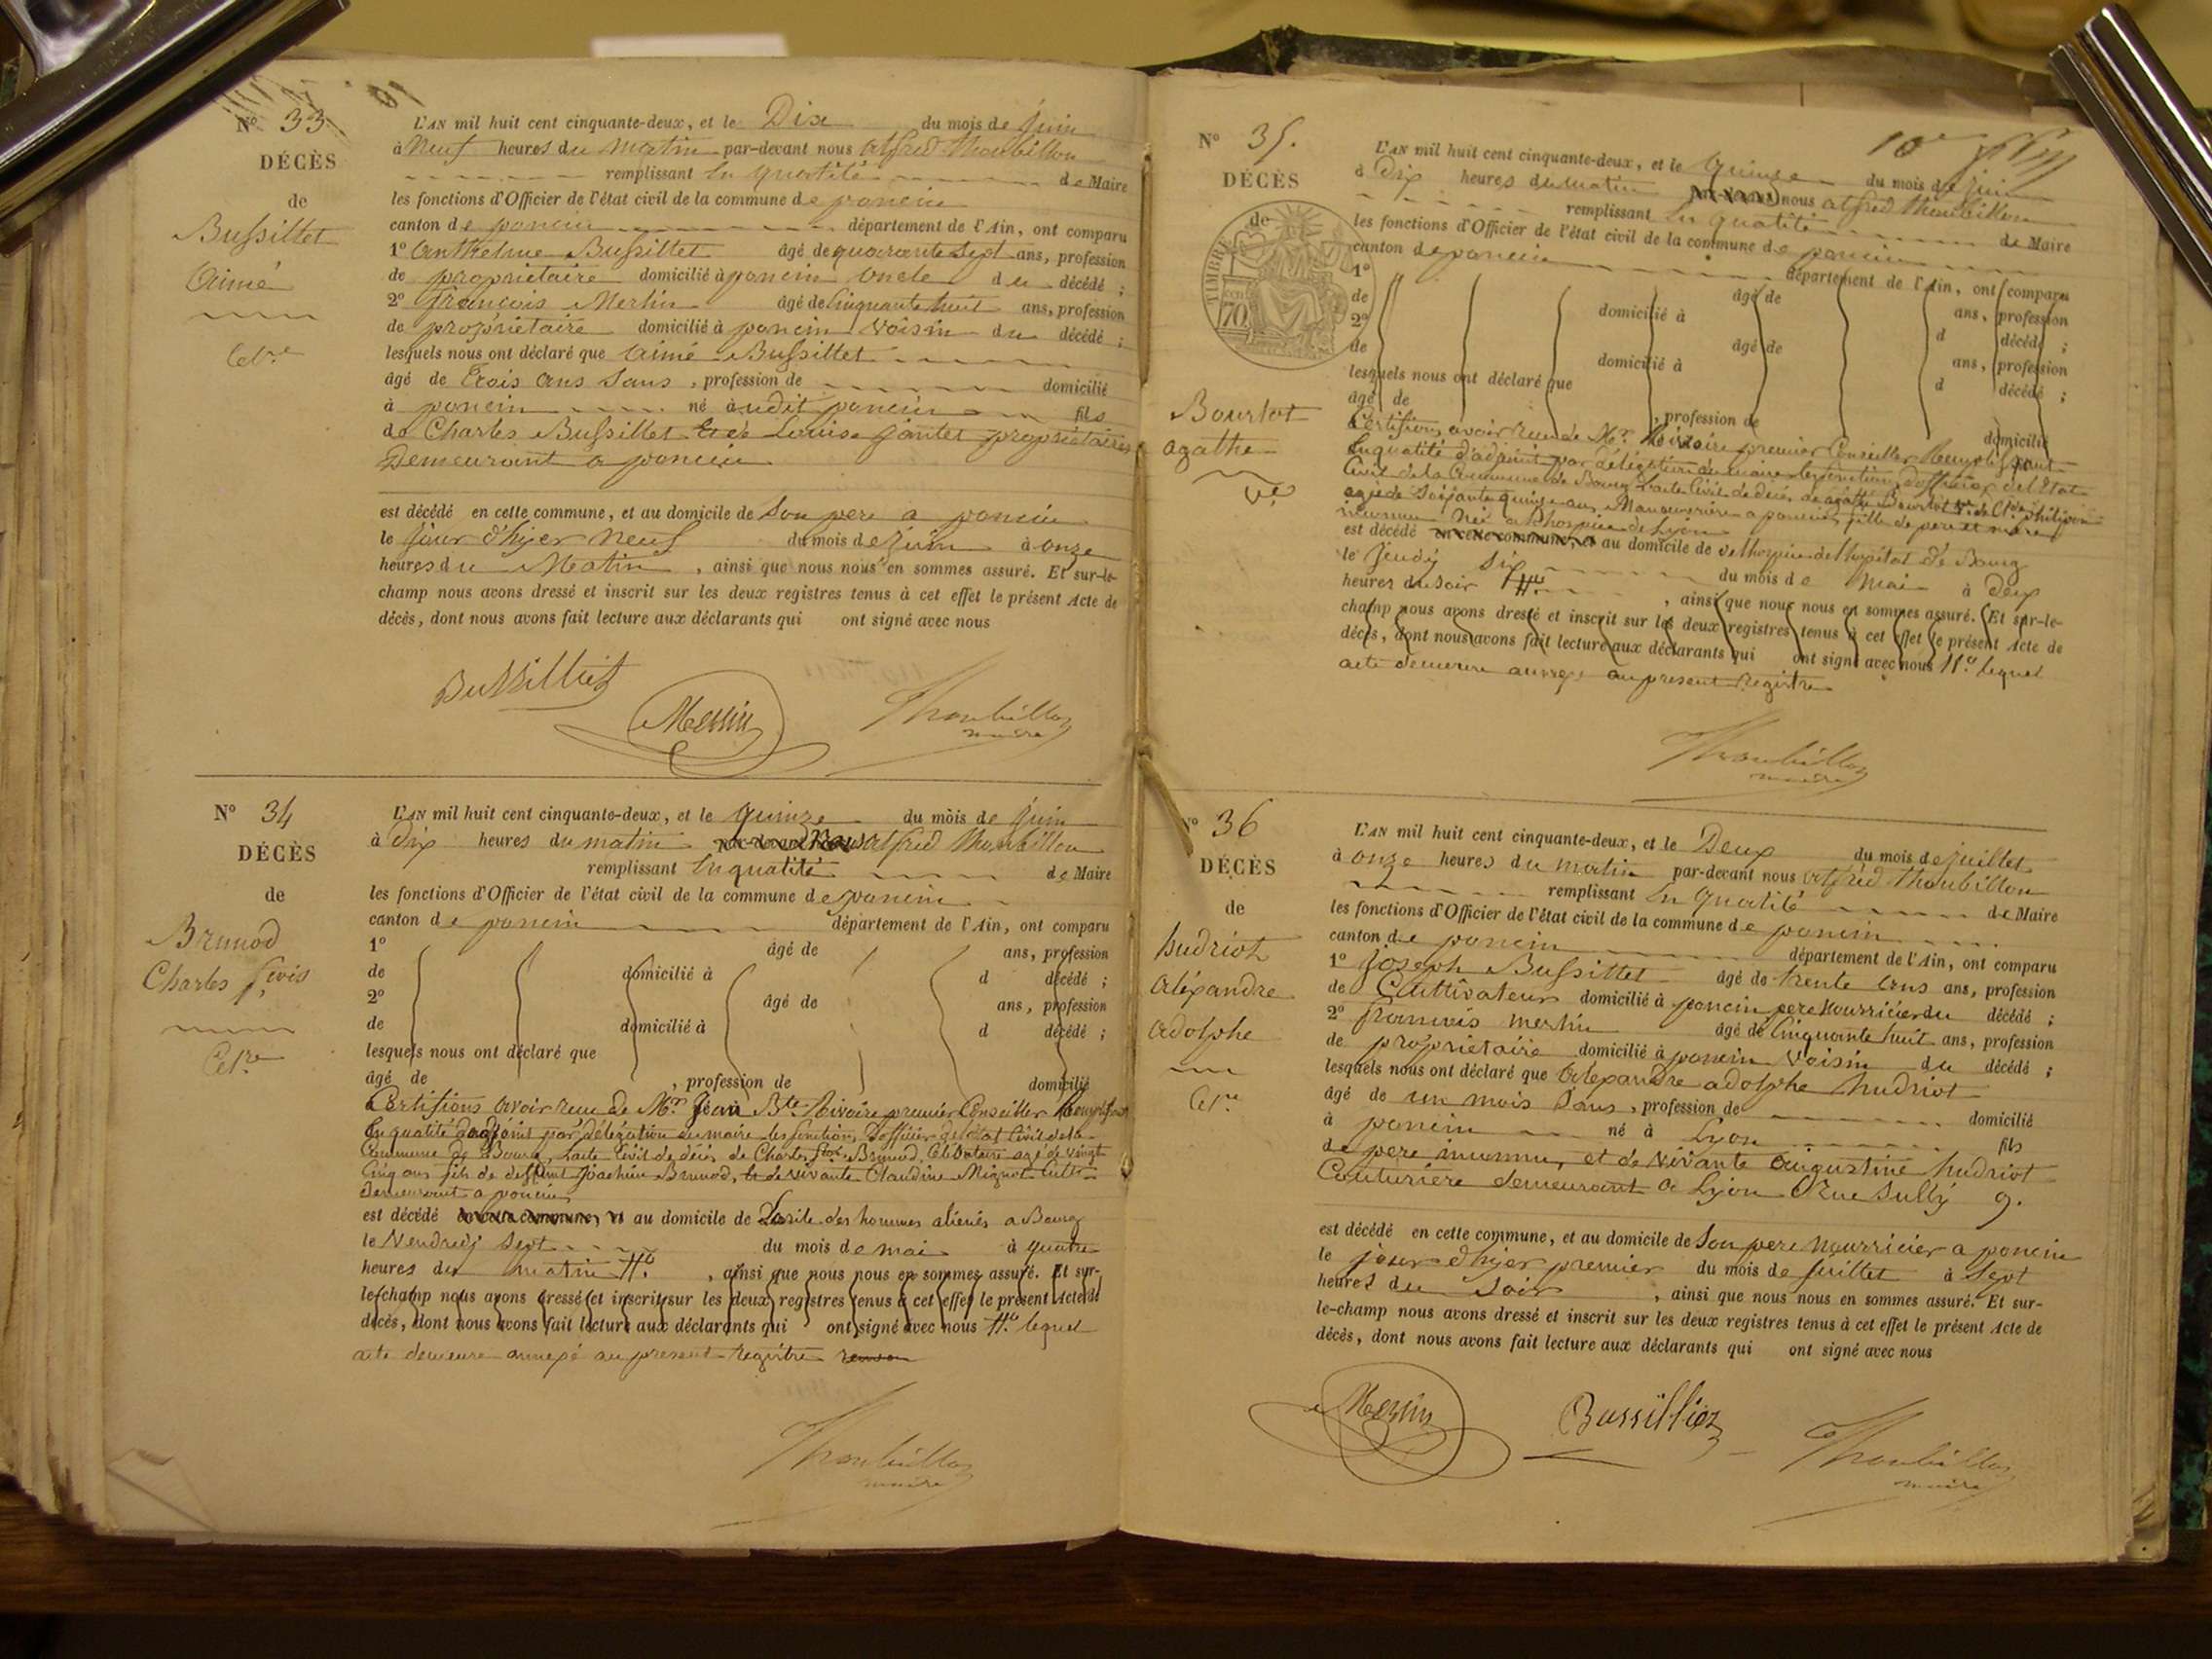 Nº 33
DÉCÈS
de
Bussillet
Aimé
Cel.re
L'AN mil huit cent cinquante-deux, et le Dix du mois de juin
à Neuf heures du Matin par-devant nous alfred thoubillon
remplissant En qualité de Maire
les fonctions d'Officier de l'état civil de la commune de poncin
canton de poncin département de l'Ain, ont comparu
1º Anthelme Bussillet âgé de quarante Sept ans, profession
de propriétaire domicilié à poncin oncle du décédé ;
2º françois Merlin âgé de Cinquante huit ans, profession
de propriétaire domicilié à poncin Voisin du décédé ;
lesquels nous ont déclaré que Aimé Bussillet
âgé de trois ans Sans , profession de domicilié
à poncin né à udit poncin fils
de Charles Bussillet et de Louise jantet propriétaires
Demeurant a poncin
est décédé en cette commune, et au domicile de Son pere a poncin
le jour d'hyer neuf du mois de juin à onze
heures du Matin , ainsi que nous nous en sommes assuré. Et sur-le-
champ nous avons dressé et inscrit sur les deux registres tenus à cet effet le présent Acte de
décès, dont nous avons fait lecture aux déclarants qui ont signé avec nous
Bussilliet Merlin Thoubillon
maire
Nº 34
DÉCÈS
de
Brunod
Charles fcois
Cel.re
L'AN mil huit cent cinquante-deux, et le quinze du mois de juin
à Dix heures du matin par-devant Nous alfred thoubillon
remplissant En qualité de Maire
les fonctions d'Officier de l'état civil de la commune de poncin
canton de poncin département de l'Ain, ont comparu
1º âgé de ans, profession
de domicilié à d décédé ;
2º âgé de ans, profession
de domicilié à d décédé ;
lesquels nous ont déclaré que
âgé de , profession de domicilié
Certifions avoir reçu de Mr. Jean Bte. Rivoire premier Conseiller Remplissant
En qualité d'adjoint par délégation du maire les fonctions D'officier de l'état Civil de la
Commune de Bourg L'acte Civil de décès de Charles fcois Brunod, Célibataire agé de vingt
Cinq ans fils de deffunt Joachim Brunod, et de vivante Claudine Mignot Cultr.
demeurant a poncin
est décédé en cette commune, et au domicile de L'asile des hommes aliénés a Bourg
le Vendredi Sept du mois de mai à quatre
heures du matin , ainsi que nous nous en sommes assuré. Et sur-
le-champ nous avons dressé et inscrit sur les deux registres tenus à cet effet le présent Acte de
décès, dont nous avons fait lecture aux déclarants qui ont signé avec nous lequel
acte demeure annexé au present Registre
Thoubillon
maire
Nº 35.
DÉCÈS
de
TIMBRE
70
Bourlot
agathe
Ve
10e
L'AN mil huit cent cinquante-deux, et le Quinze du mois de juin
à Dix heures du matin nous alfred thoubillon
remplissant En qualité de Maire
les fonctions d'Officier de l'état civil de la commune de poncin
canton de poncin département de l'Ain, ont comparu
1º âgé de ans, profession
de domicilié à d décédé ;
2º âgé de ans, profession
de domicilié à d décédé ;
lesquels nous ont déclaré que
âgé de , profession de domicilié
Certifions avoir reçu de Mr. Rivoire premier Conseiller Remplissant
En qualité d'adjoint par Délégation du maire les fonctions d'officier de l'état
Civil de la Commune de Bourg L'acte Civil de décès de agathe Bourlot Ve. de Cde. philipon
agée de Soixante quinze ans, Manouvrière a poncin, fille de pere et mere
inconnu Née a L'hospice de Lyon
est décédé en cette commune, et au domicile de de l'hospice de l'hopital de Bourg
le Jeudy Six du mois de mai à deux
heures du soir , ainsi que nous nous en sommes assuré. Et sur-le-
champ nous avons dressé et inscrit sur les deux registres tenus à cet effet le présent Acte de
décès, dont nous avons fait lecture aux déclarants qui ont signé avec nous lequel
acte demeure annexé au present Registre
Thoubillon
maire
Nº 36
DÉCÈS
de
hudriot
Aléxandre
adolphe
Cel.re
L'AN mil huit cent cinquante-deux, et le Deux du mois de juillet
à onze heures du matin par-devant nous alfred thoubillon
remplissant En qualité de Maire
les fonctions d'Officier de l'état civil de la commune de poncin
canton de poncin département de l'Ain, ont comparu
1º Joseph Bussillet âgé de trente ans ans, profession
de Cultivateur domicilié à poncin pere Nourricier du décédé ;
2º francois merlin âgé de Cinquante huit ans, profession
de propriétaire domicilié à poncin Voisin du décédé ;
lesquels nous ont déclaré que Alexandre adolphe hudriot
âgé de un mois Sans , profession de domicilié
à poncin né à Lyon fils
de pere inconnu, et de Vivante Augustine hudriot
Couturière demeurant a Lyon Rue Sully 9.
est décédé en cette commune, et au domicile de Son pere Nourricier a poncin
le jour d'hyer premier du mois de juillet à Sept
heures du Soir , ainsi que nous nous en sommes assuré. Et sur-
le-champ nous avons dressé et inscrit sur les deux registres tenus à cet effet le présent Acte de
décès, dont nous avons fait lecture aux déclarants qui ont signé avec nous
Merlin Bussilliez Thoubillon
maire